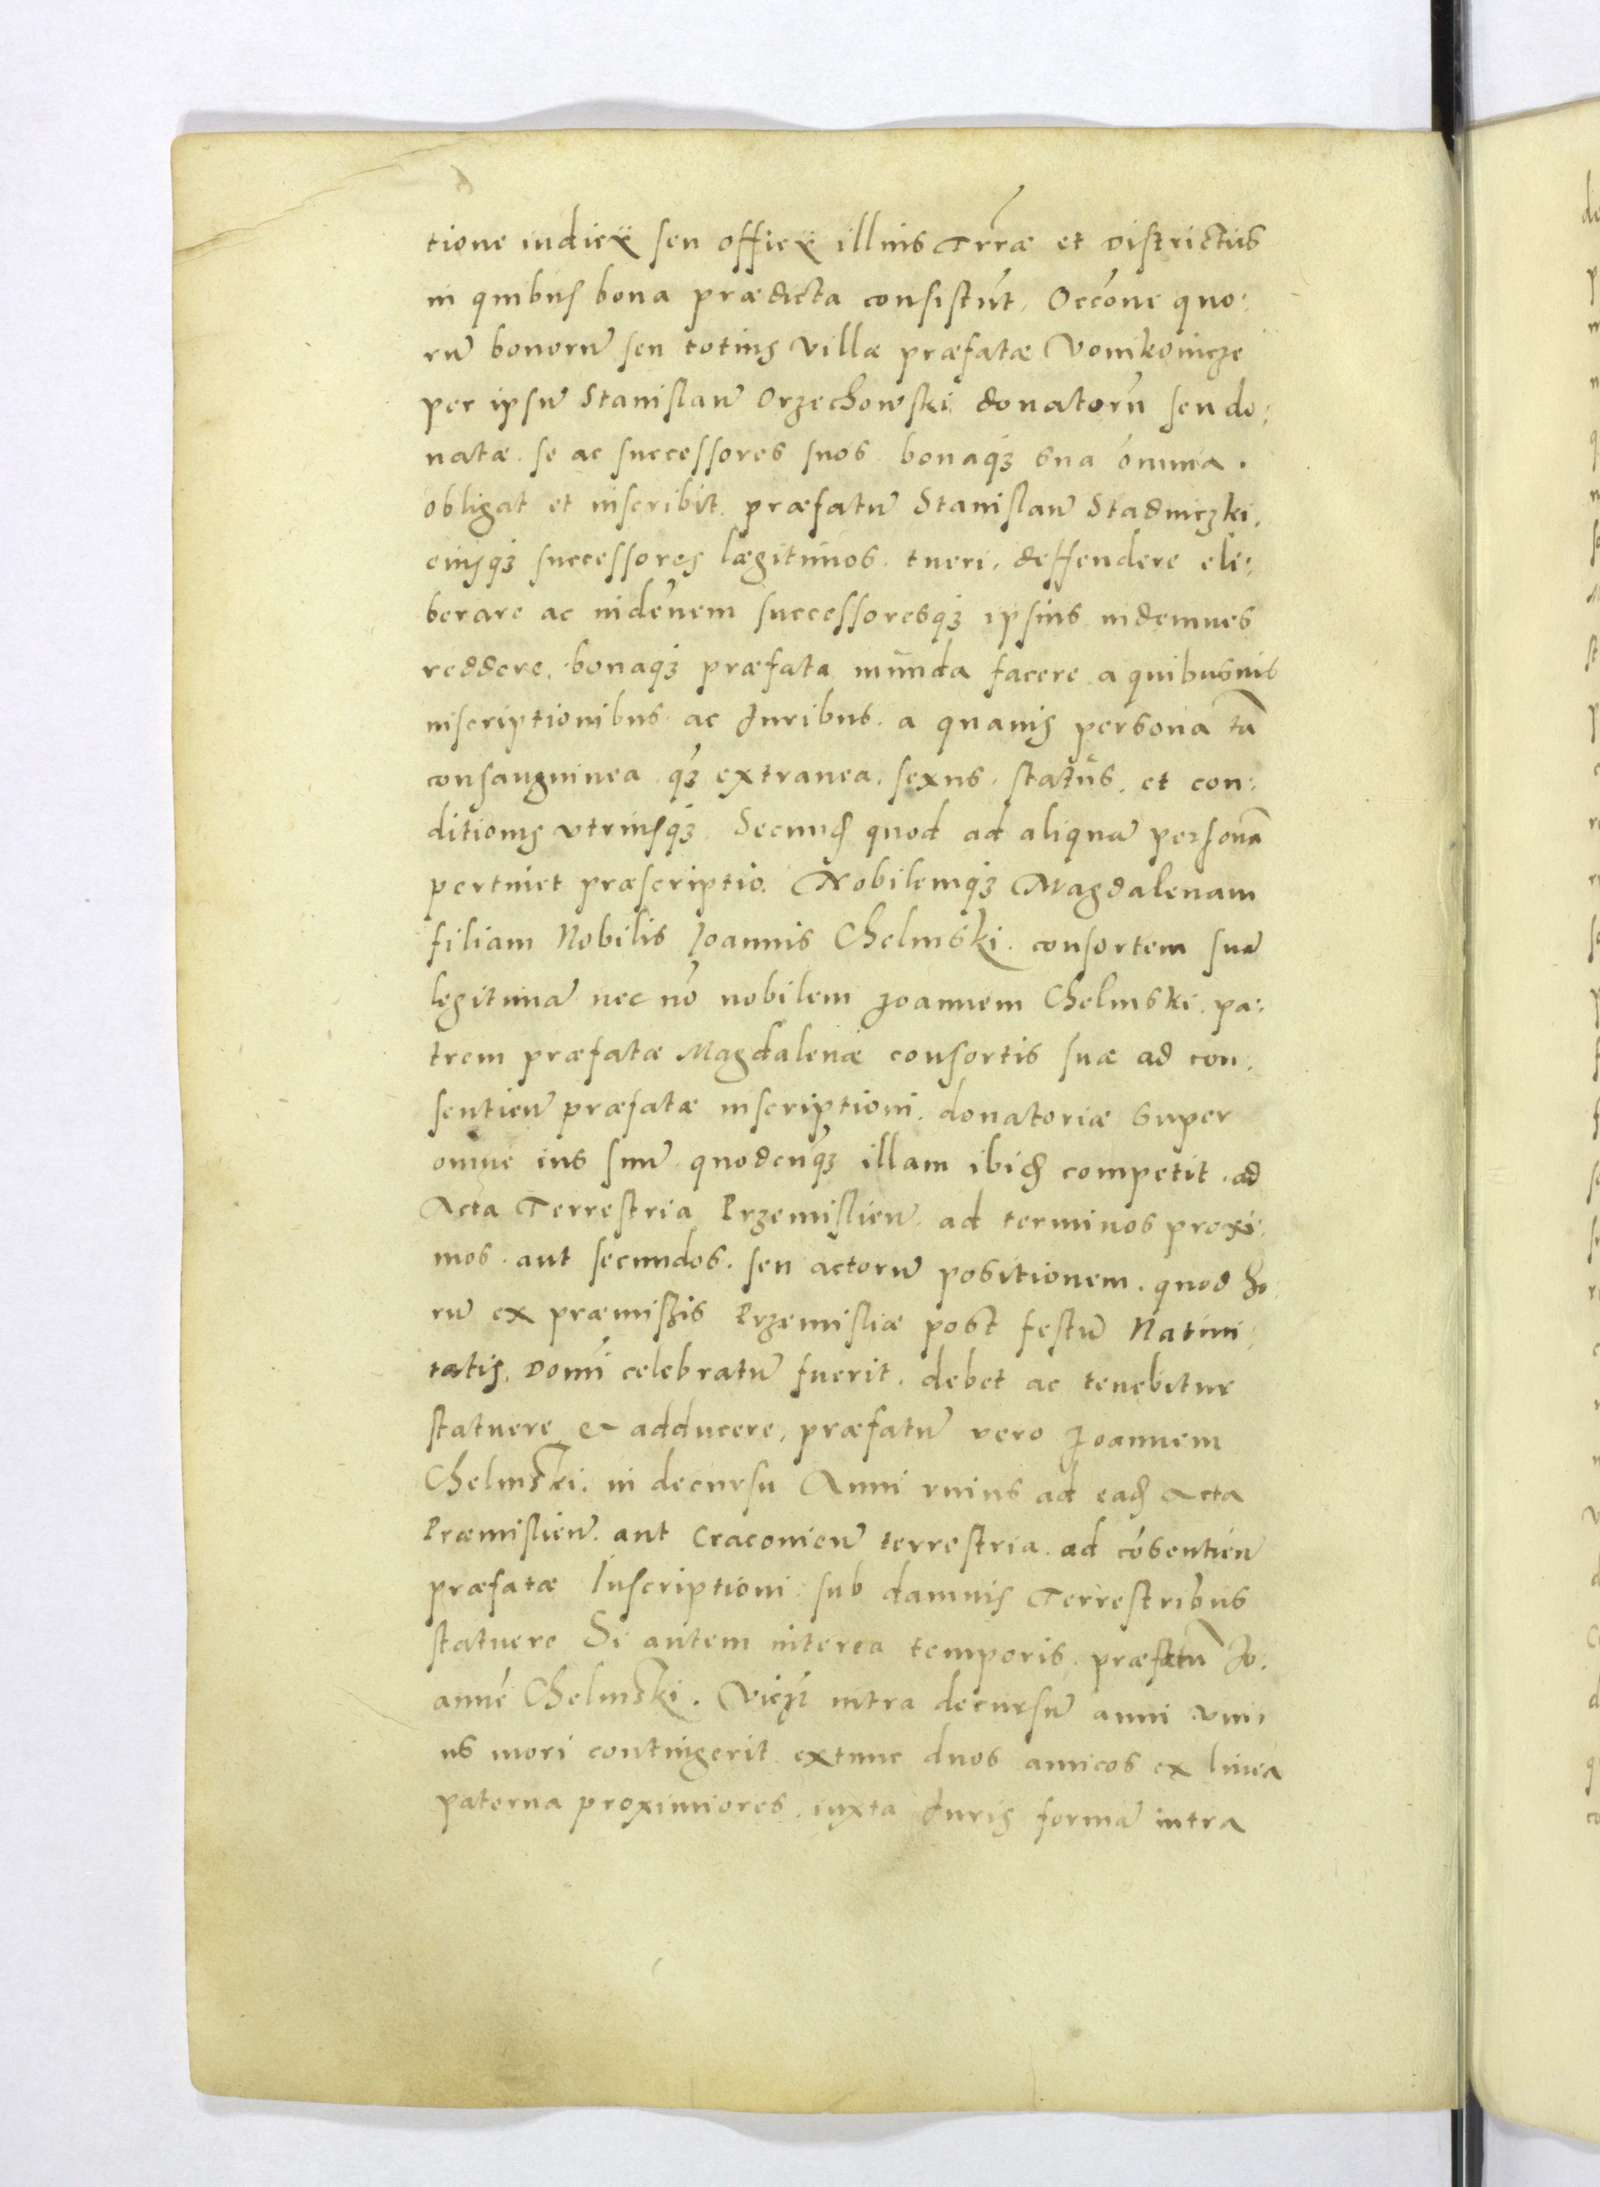 tione iudicÿ seu officÿ illius Terræ et Districtus
in quibus bona prædicta consistūt. Occōne quo:
rū bonorū seu totius villæ præfatæ
per ipsū Stanislaū Orzechowski donatorū seu do:
natæ. se ac successores suos bonaq3 sua omnia.
obligat et inscribit. præfatū Stanislaū Stadniczki.
eiusq3 successores lægitimos. tueri. deffendere eli:
berare ac indēnem successoresq3 ipsius indemnes
reddere. bonaq3 præfata munda facere a quibusuis
inscriptionibus ac Juribus. a quauis persona tā
consanguinea q3 extranea. sexus. status. et con:
ditionis vtriusq3. Secund quod ad aliquā personā
pertinet præscriptio. Nobilemq3 Magdalenam
filiam Nobilis Joannis Chelmski. consortem suā
legitimā nec nō nobilem Joannem Chelmski. pa:
trem præfatæ Magdalenæ consortis suæ ad con:
sentien præfatæ inscriptioni. donatoriæ super
omne ius suū quodcuq3 illam ibid competit. ad
Acta Terrestria Przemislien. ad terminos proxi:
mos. aut secundos. seu actorū positionem. quod ho:
rū ex præmissis Przemisliæ post festū Natiui:
tatis. Domi celebratū fuerit. debet ac tenebitur
statuere & adducere. præfatū vero Joannem
Chelmski. in decursu Anni vnius ad ead Acta
Præmislien. aut Cracouien terrestria. ad cōsentien
præfatæ Inscriptioni sub damnis Terrestribus
statuere Si autem interea temporis. præfatū Jo:
annē Chelmski. intra decursū anni vni:
us mori contingerit extunc duos amicos ex linea
paterna proximiores. iuxta Juris formā intra